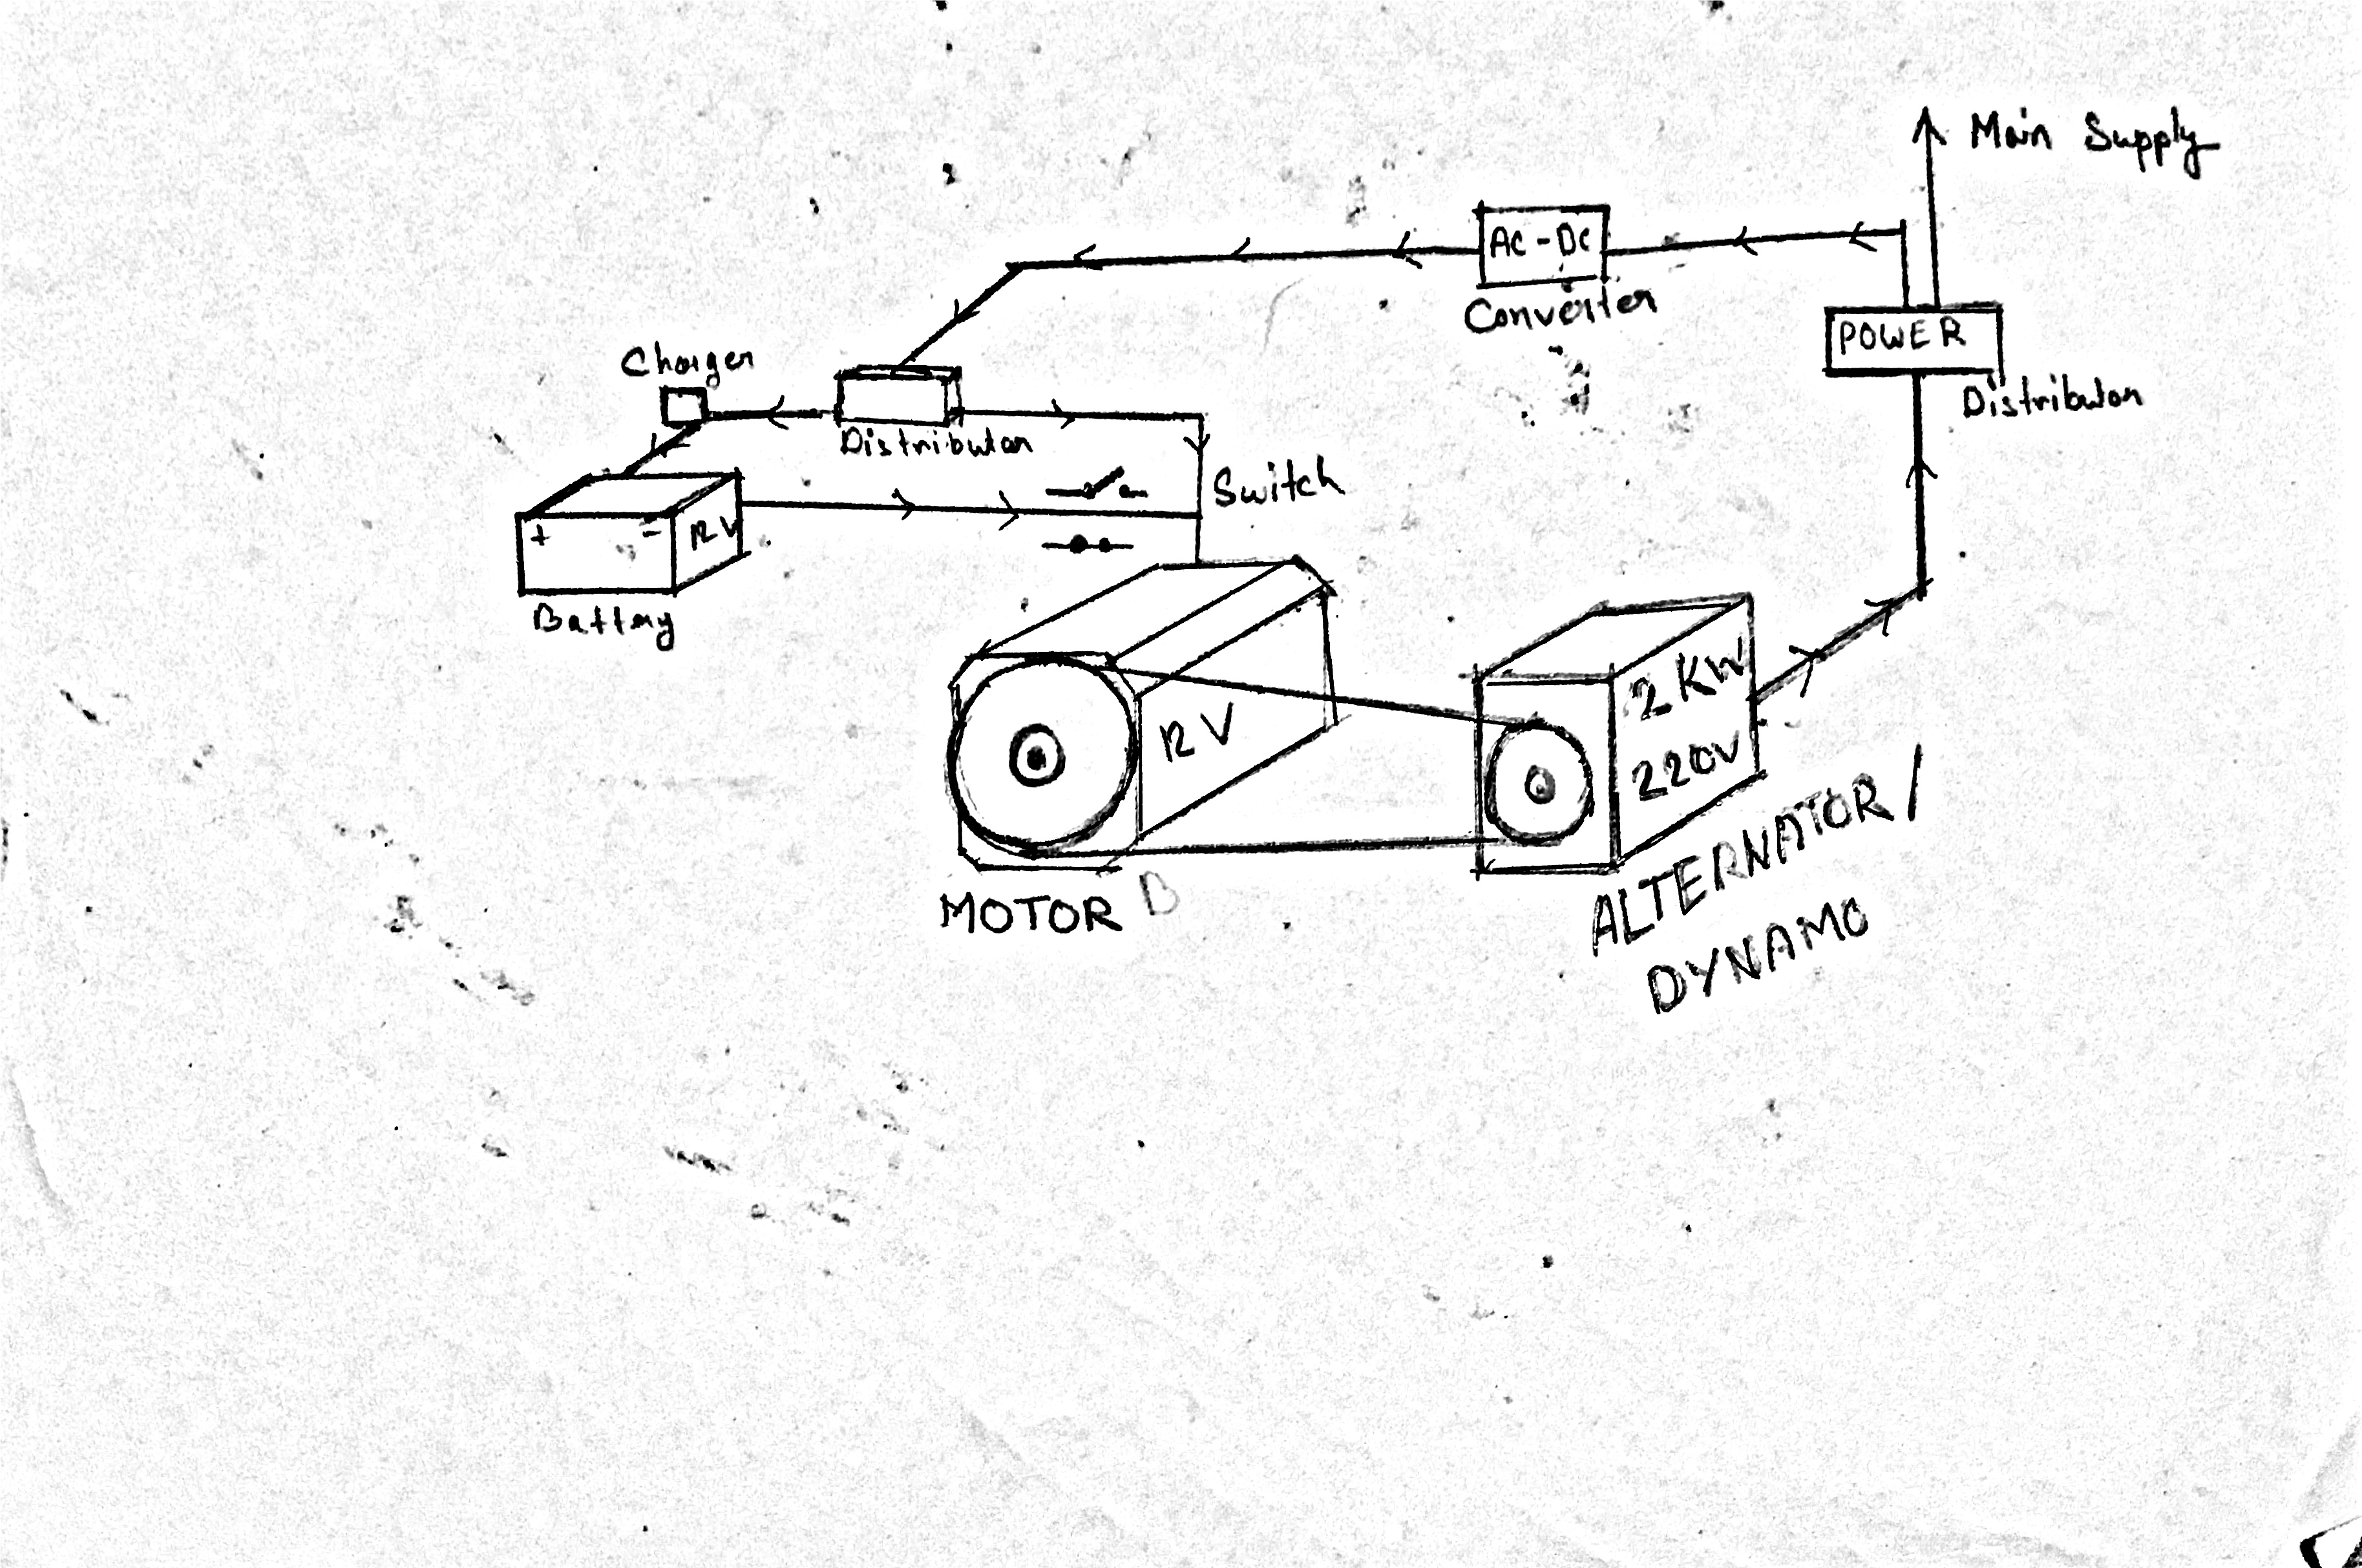 Main Supply
AC-DC
Converter
POWER
Distributor
Charger
Distributor
Switch
+ - 12V
Battery
12V
MOTOR
2 KW
220V
ALTERNATOR/
DYNAMO